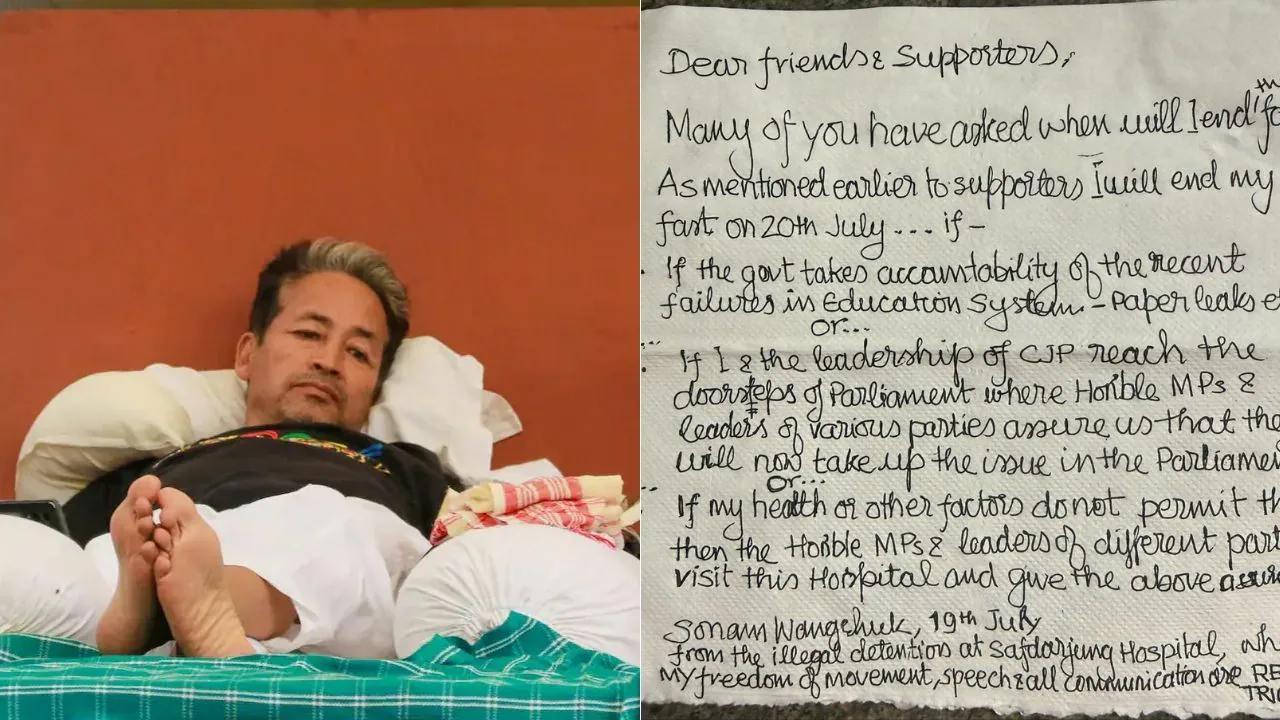 Dear friends & Supporters,
th
Many of you have asked when will I end fa
As mentioned earlier to supporters I will end my
fast on 20th July .... if –
If the govt takes accountability of the recent
failures in Education System. – Paper leaks et
or...
If I & the leadership of CJP reach the
doorsteps of Parliament where Hon'ble MPs &
leaders of various parties assure us that the
will now take up the issue in the Parliamen
or...
If my health or other factors do not permit th
then the Hon'ble MPs & leaders of different part
visit this Hospital and give the above assur
Sonam Wangchuk, 19th July
from the illegal detention at Safdarjung Hospital, wh
My freedom of movement, speech & all communication are RE
TRI